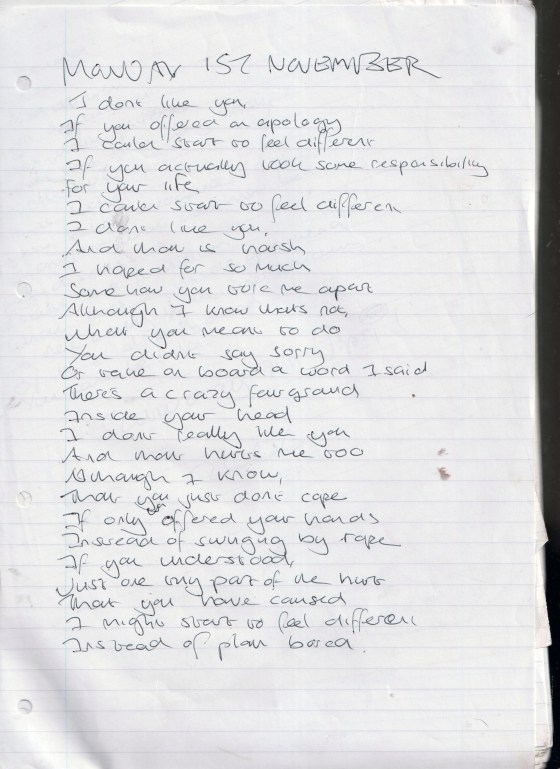 MONDAY 1ST NOVEMBER
I dont like you,
If you offered an apology
I could start to feel different
If you actually took some responsibility
for your life,
I could start to feel different
I dont like you,
And that is harsh
I hoped for so much
Somehow you tore me apart
Although I know thats not,
What you meant to do
You didnt say sorry
Or take on board a word I said
There's a crazy fairground
Inside your head
I dont really like you
And that hurts me too
Although I know,
That you just dont cope
If only you offered your hands
Instead of swinging by rope
If you understood,
Just one tiny part of the hurt
That you have caused
I might start to feel different
Instead of plain bored.